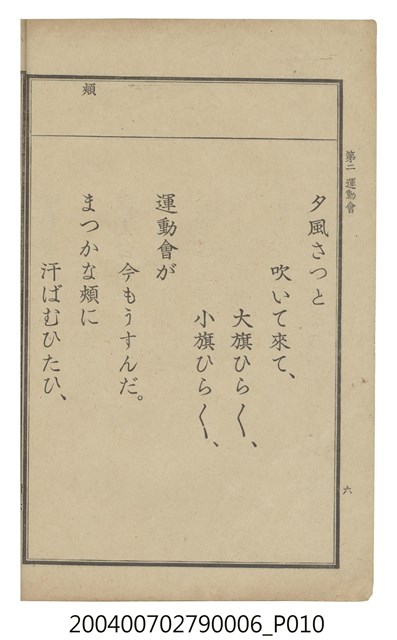 第二 運動會
六
頰
夕風さつと
吹いて來て、
大旗ひら〱、
小旗ひら〱、
運動會が
今もうすんだ。
まつかな頰に
汗ばむひたひ、
200400702790006_P010